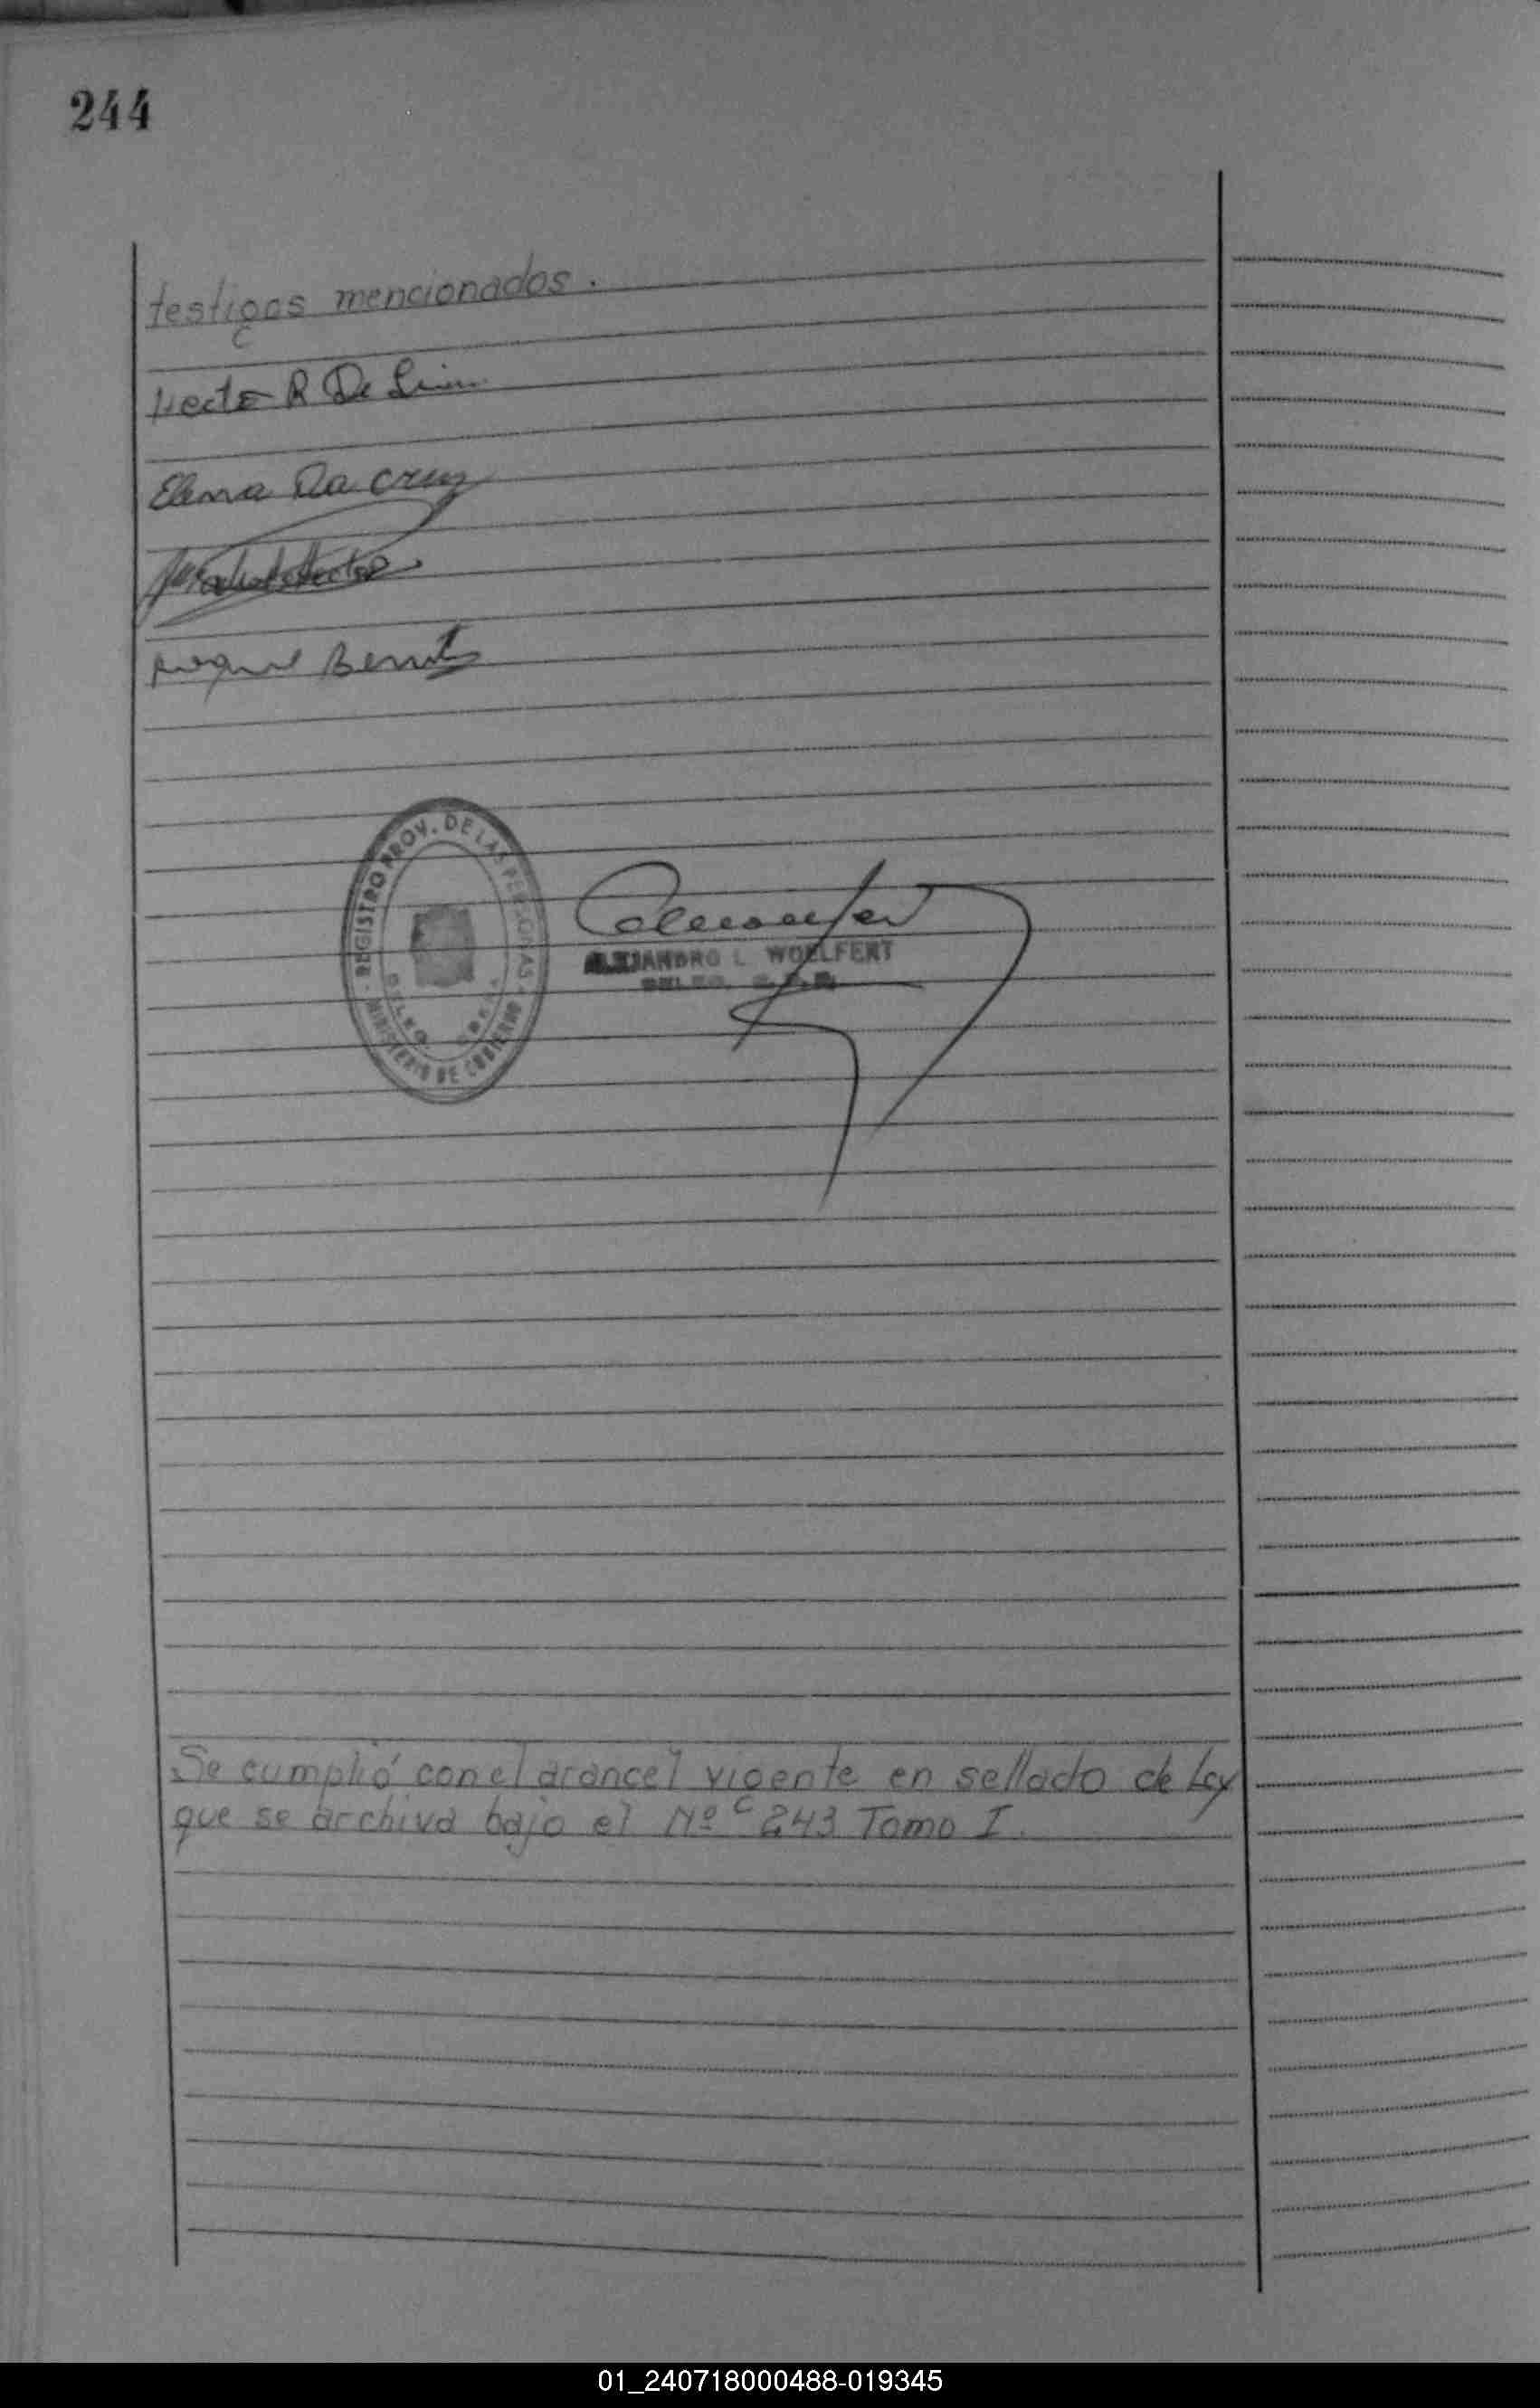 244
testigos mencionados.
Hecto R De Lim
Elena Da Cruz
Benit
REGISTRO PROV. DE LAS PERSONAS
MINISTERIO DE GOBIERNO
DELEG. OBERA
ALEJANDRO L WOELFERT
DELEG.
Se cumplió con el arancel vigente en sellado de Ley
que se archiva bajo el Nº C 243 Tomo I.
01_240718000488-019345